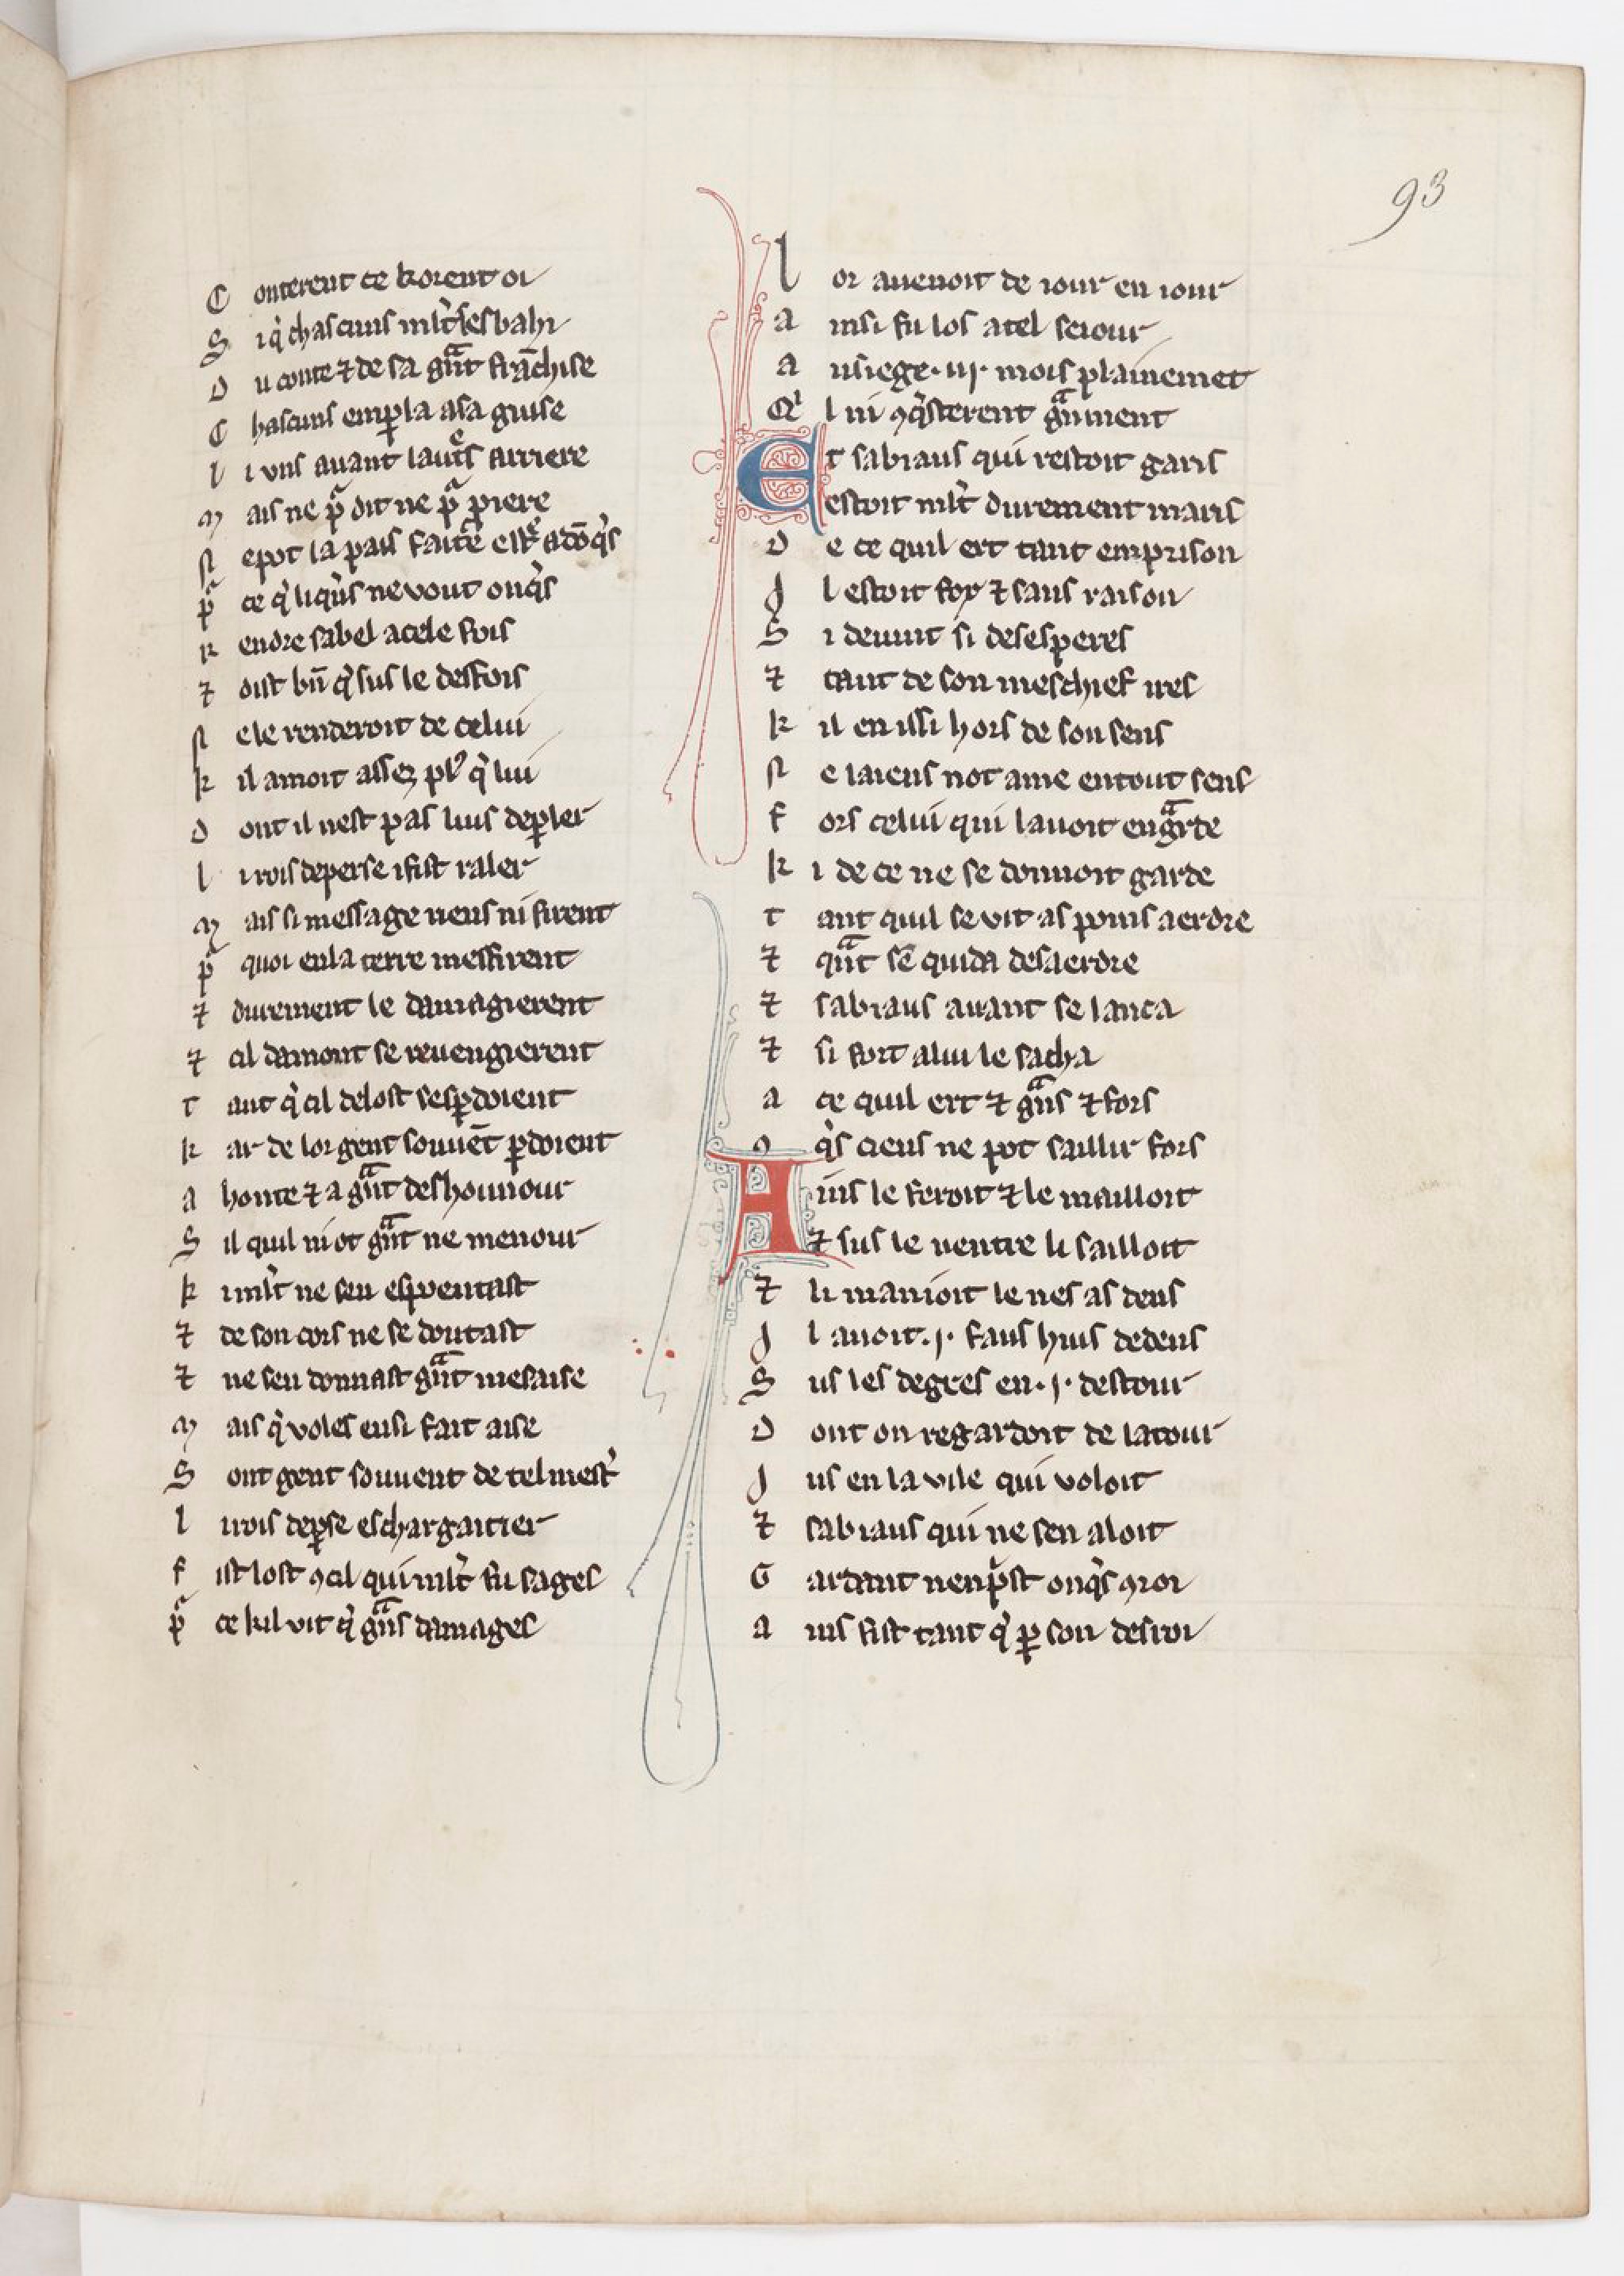 93
C onterent ce korent oi
S i q̇ chascuns ml't ses bahi
D u conte ⁊ de sa gͣnt franchise
C hascuns empꝑla asa guise
l i vns auant lautͤs arriere
M ais ne pͣ dit ne pͣ piere
N epot la pais faite estͤ adōq̇s
pͣ ce q̇ liq̇ns nevout onq̇s
R endre sabel acele fois
⁊ oist bn̄ q̇ sus le desfois
N ele renderoit de celui
k il amoit assez plꝰ q̇ lui
D ont il nest pas luis deꝑler
l i rois deperse i fist raler
M ais si message riens ni firent
pͣ quoi enla terre mesfirent
⁊ durement le damagierent
⁊ cil damont se reuengierent
T ant q̇ cil delost sesꝑdoient
k ar de lor gent souuēt ꝑdoient
a honte ⁊ a gͣnt deshounour
S il quil ni ot gͣnt ne menour
k i ml't ne sen espoentast
⁊ de son cors ne se doutast
⁊ ne sen donnast gͣnt mesaise
M ais q̇ voles ensi fait aise
S ont gent souuent de tel mest'
l i rois deꝑse eschargaitier
F ist lost ꝯcil qui ml't fu sages
pͣ ce kil vit q̇ gͣns damages
l or auenoit de iour en iour
a insi fu los atel seiour
a usiege .iij. mois plainemet
Qͥ l ni ꝯq̇sterent gͣnment
Et sabraus qui restoit garis
estoit ml't durement maris
D e ce quil ert tant emprison
J l estoit fox ⁊ sans raison
S i deuint si desesperes
⁊ tant de son meschief ires
k il en issi hors de son sens
N e laiens not ame entout sens
F ors celui qui lauoit engͣrde
k i de ce ne se donnoit garde
T ant quil se vit as poins aerdre
⁊ qͣnt sē quida desaerdre
⁊ sabraus auant se lanca
⁊ si fort alui le sacha
a ce quil ert ⁊ gͣns ⁊ fors
O q̇s ciens ne pot saillir fors
Ains le feroit ⁊ le mailloit
⁊ sus le uentre li sailloit
⁊ li manioit le nes as dens
J l auoit .j. faus huis dedens
S us les degres en .j. destour
D ont on regardoit de latour
J us en la vile qui voloit
⁊ sabraus qui ne sen aloit
G ardant nenpͥst onq̇s ꝯroi
a ins fist tant q̇ ꝑ son desroi